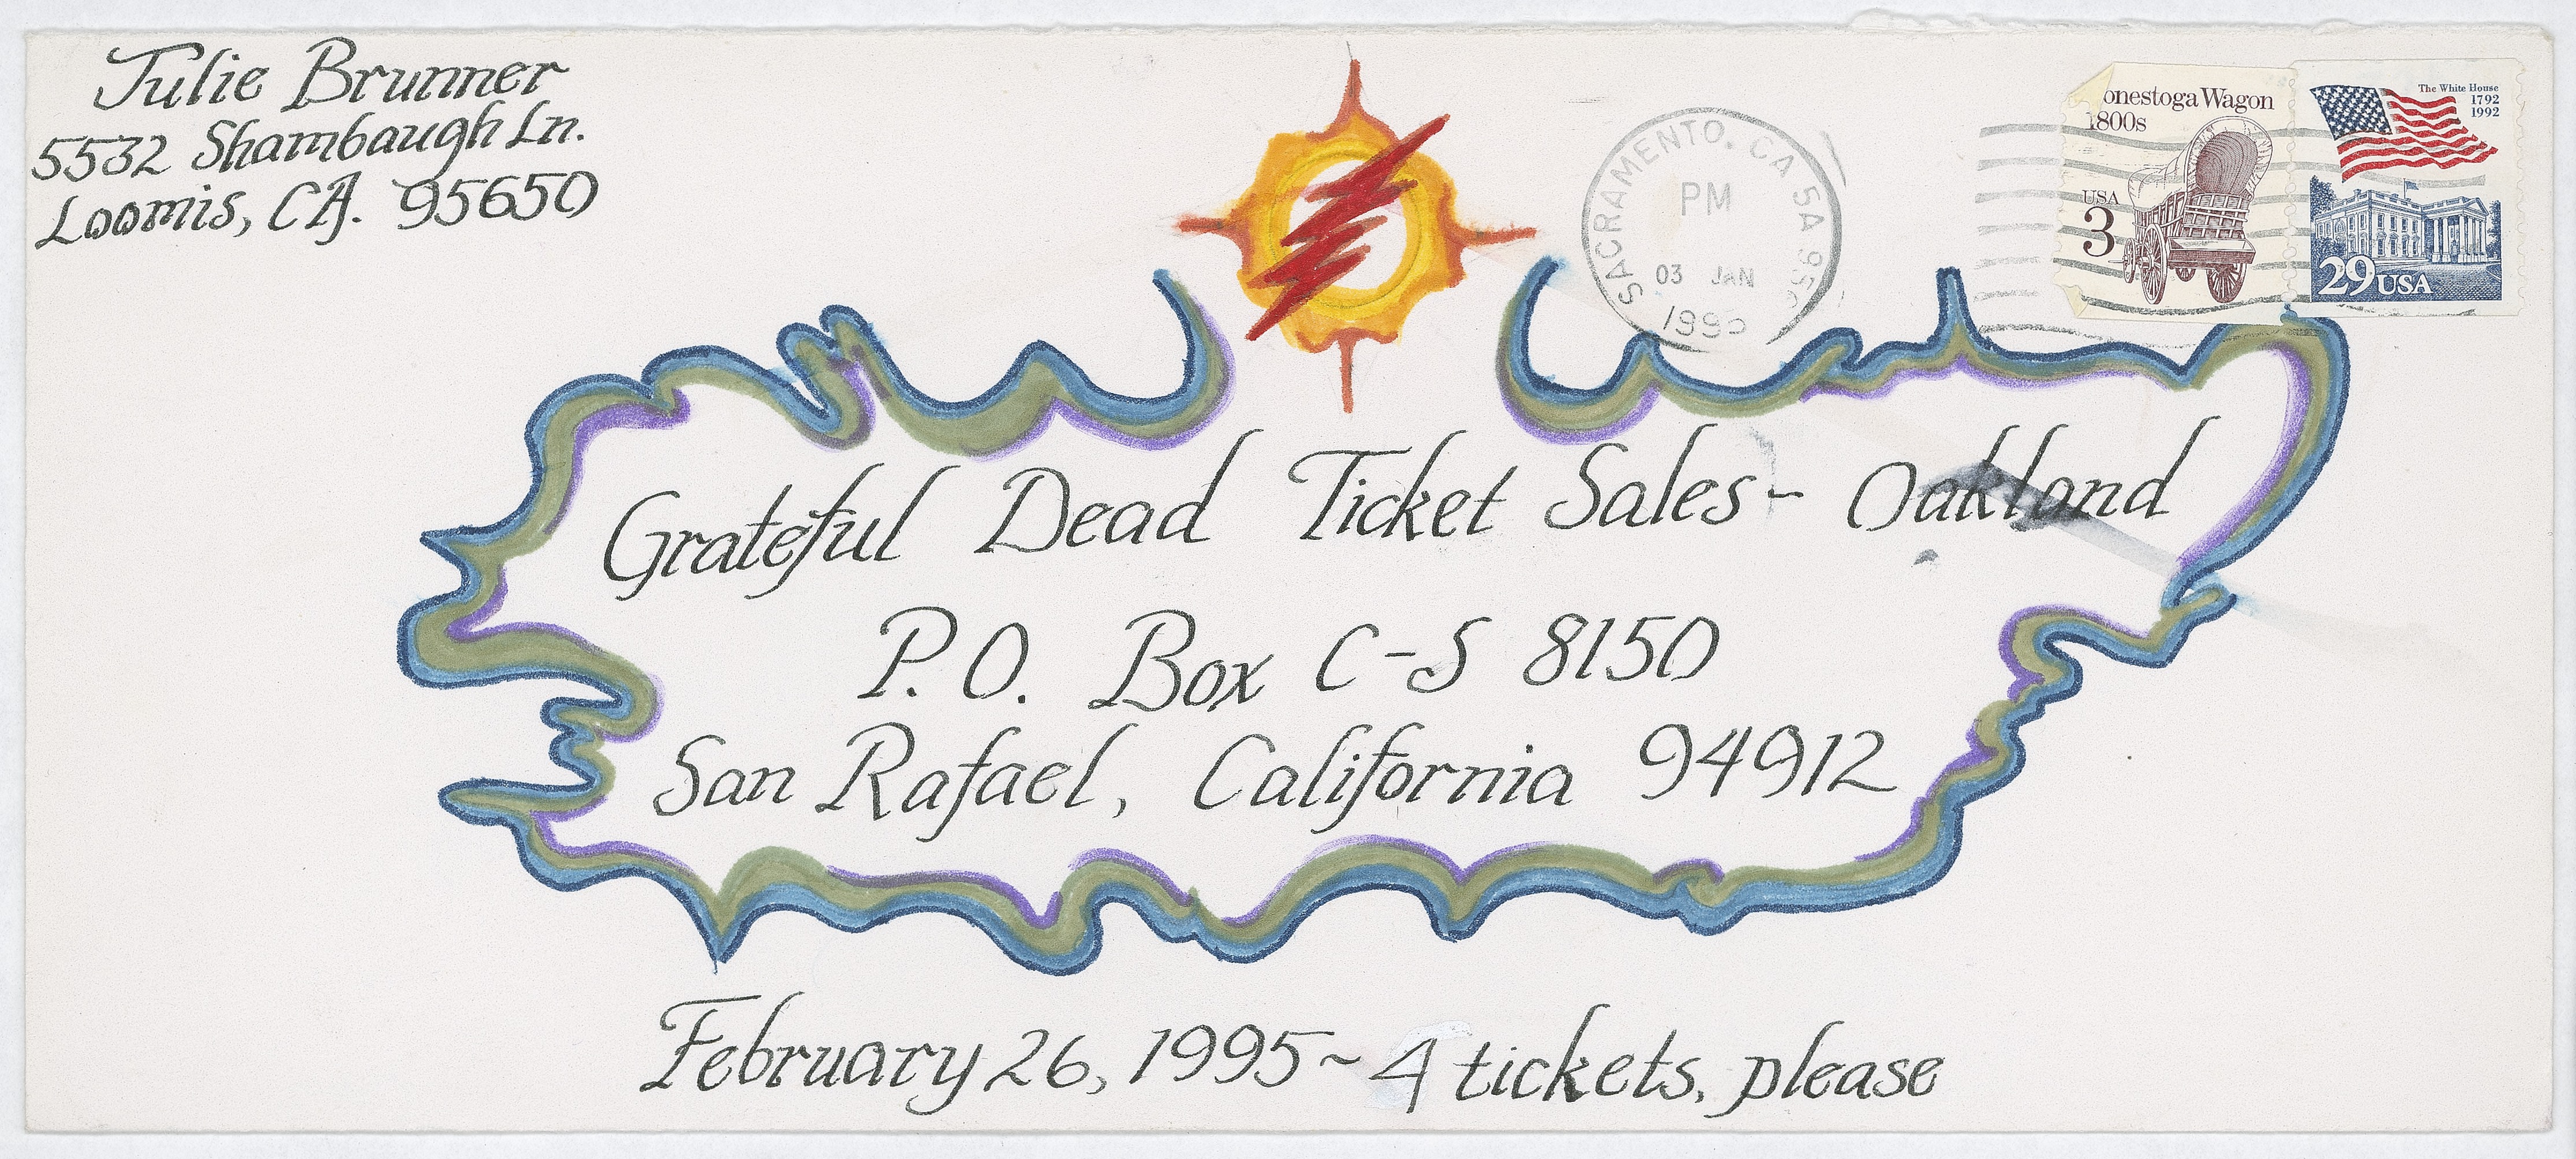 Julie Brunner
5532 Shambaugh Ln.
Loomis, CA. 95650
SACRAMENTO, CA
PM
03 JAN
onestoga Wagon
1800s
USA
3
The White House
1792
1992
29 USA
Grateful Dead Ticket Sales~ Oakland
P.O. Box C-S 8150
San Rafael, California 94912
February 26, 1995~ 4 tickets, please